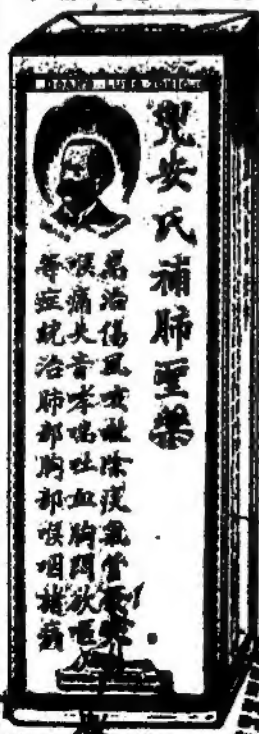 兜安氏補肺聖藥
馬治傷風咳嗽除痰氣管
喉痛失音哮喘吐血胸悶放嘔
等症統治肺部胸部喉咽諸病